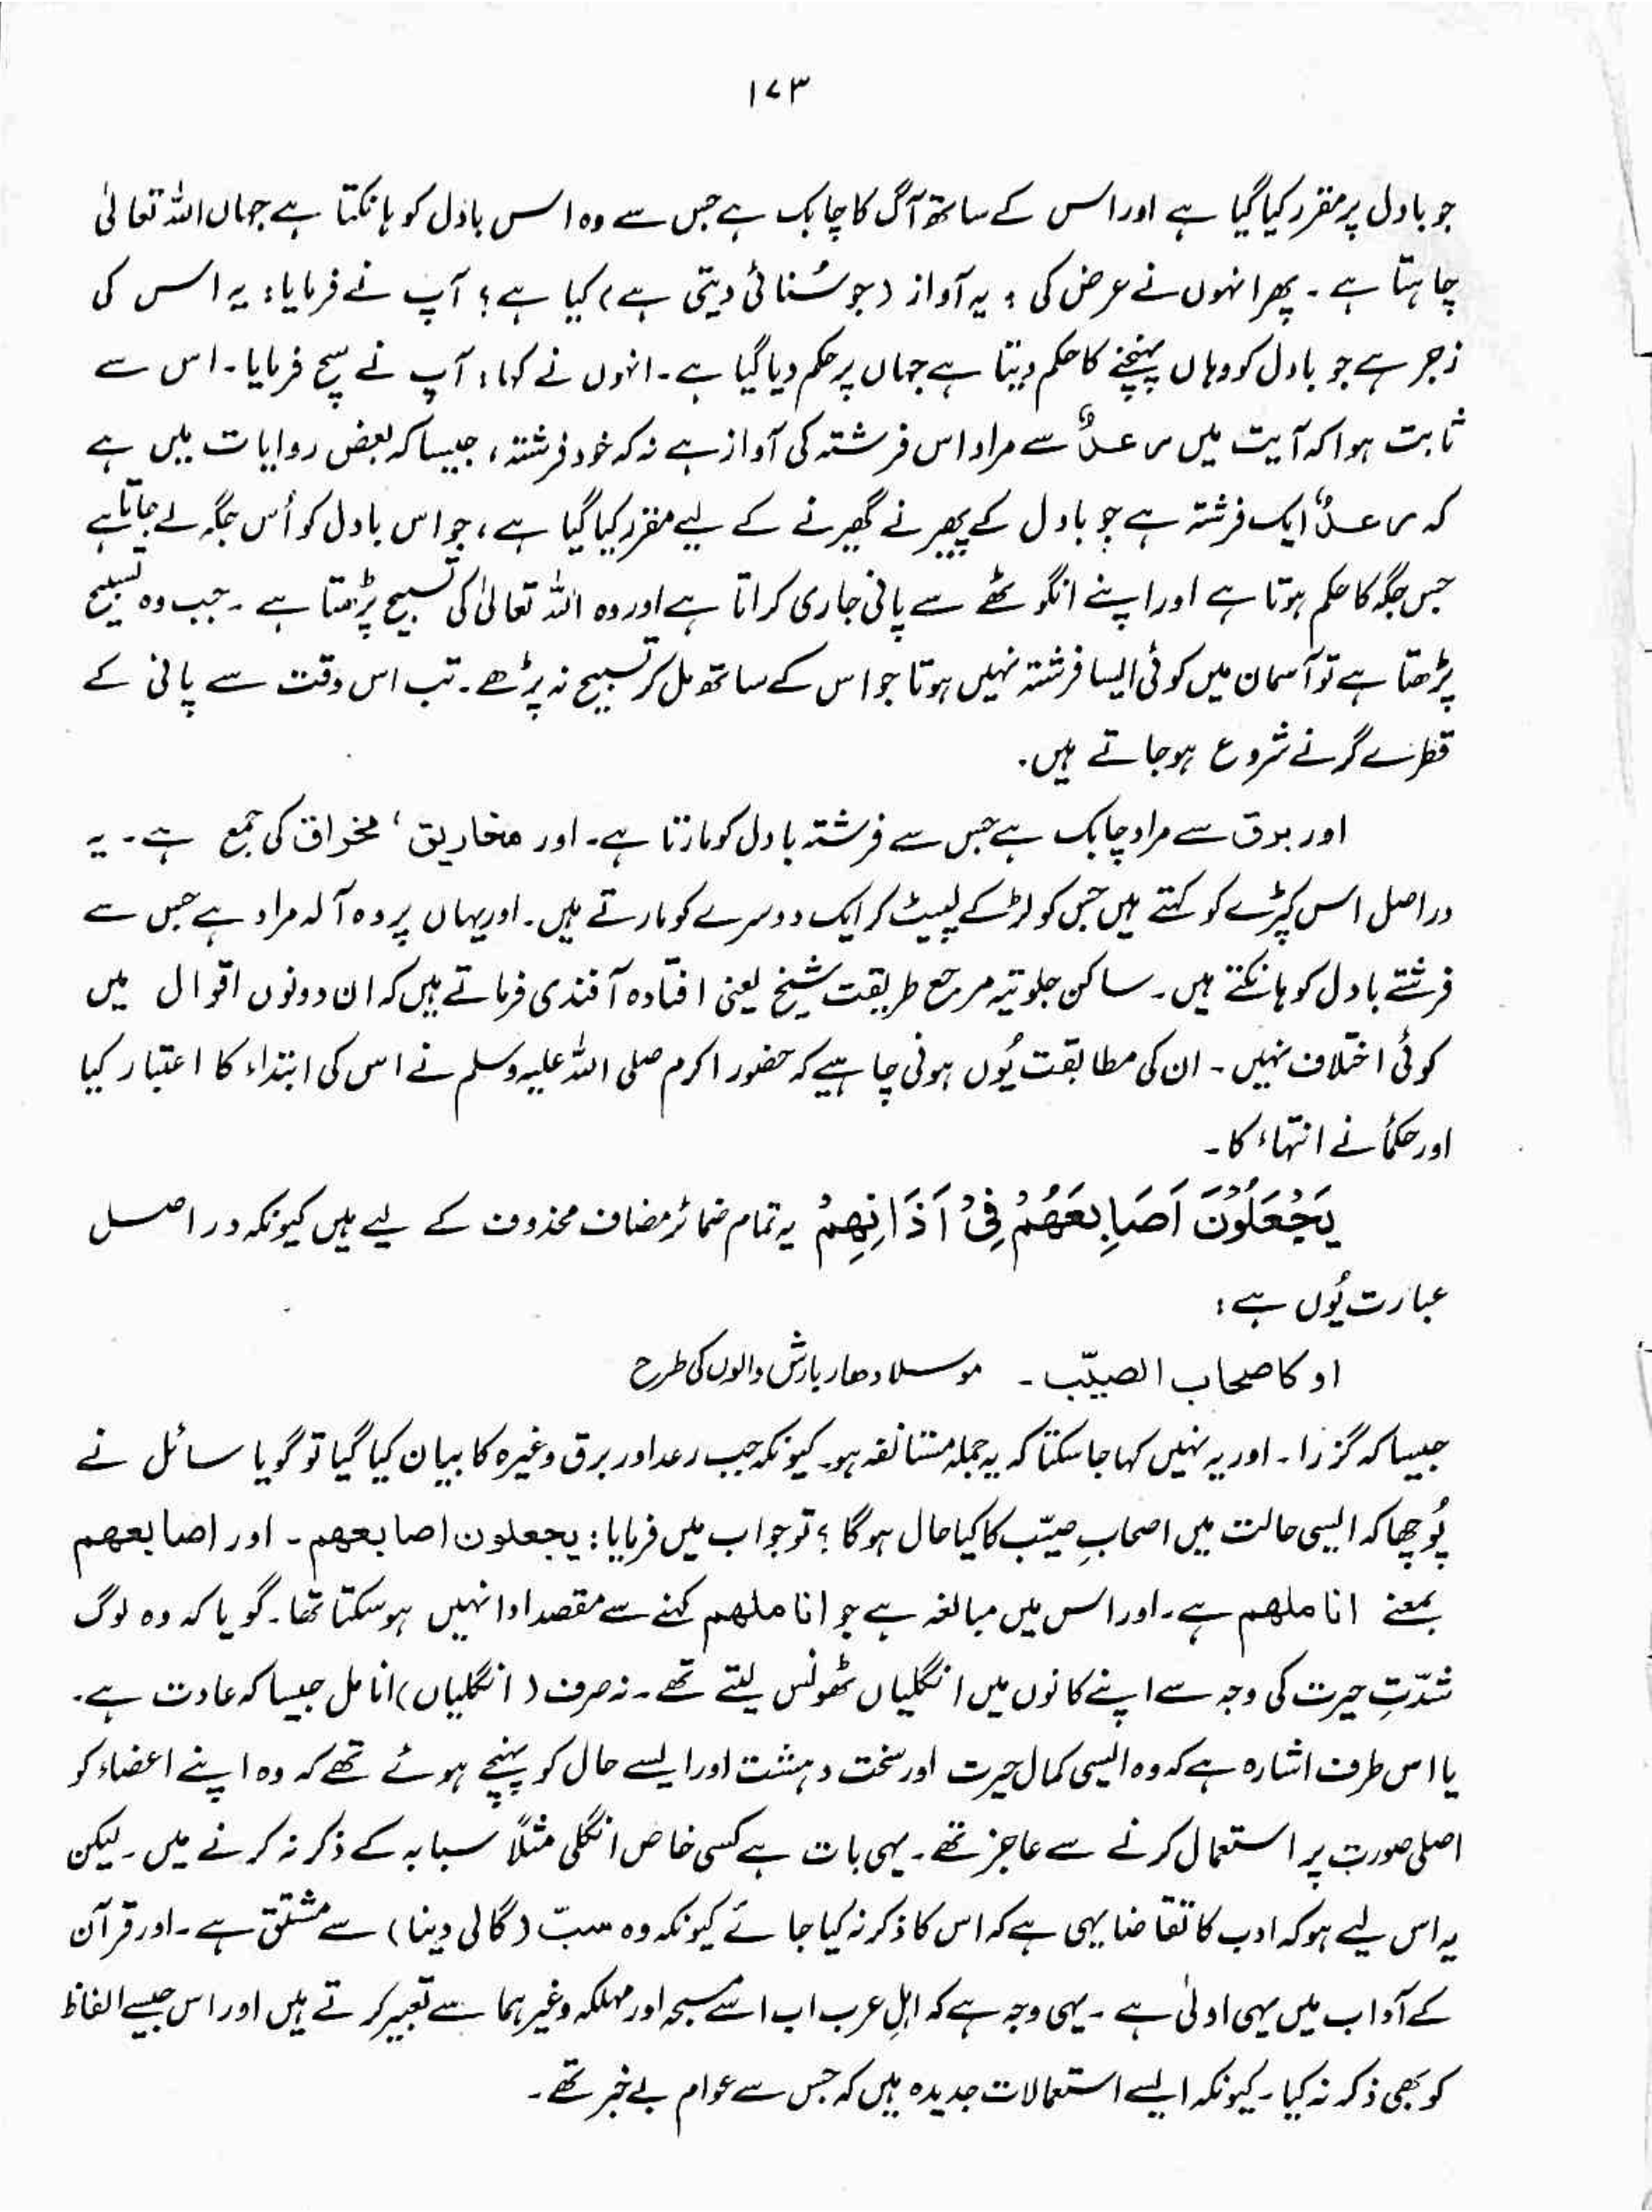 ۱۷۳
جو بادل پر مقرر کیا گیا ہے اور اس کے ساتھ آگ کا چابک ہے جس سے وہ اس بادل کو ہانکتا ہے جہاں اللہ تعالیٰ
چاہتا ہے۔ پھر انہوں نے عرض کی: یہ آواز (جو سُنائی دیتی ہے) کیا ہے؟ آپ نے فرمایا: یہ اس کی
زجر ہے جو بادل کو وہاں پہنچنے کا حکم دیتا ہے جہاں پر حکم دیا گیا ہے۔ انہوں نے کہا: آپ نے سچ فرمایا۔ اس سے
ثابت ہوا کہ آیت میں رعدٌ سے مراد اس فرشتہ کی آواز ہے نہ کہ خود فرشتہ، جیسا کہ بعض روایات میں ہے
کہ رعدٌ ایک فرشتہ ہے جو بادل کے پھیرنے گھیرنے کے لیے مقرر کیا گیا ہے، جو اس بادل کو اُس جگہ لے جاتا ہے
جس جگہ کا حکم ہوتا ہے اور اپنے انگوٹھے سے پانی جاری کراتا ہے اور وہ اللہ تعالیٰ کی تسبیح پڑھتا ہے۔ جب وہ تسبیح
پڑھتا ہے تو آسمان میں کوئی ایسا فرشتہ نہیں ہوتا جو اس کے ساتھ مل کر تسبیح نہ پڑھے۔ تب اس وقت سے پانی کے
قطرے گرنے شروع ہو جاتے ہیں۔
اور برق سے مراد چابک ہے جس سے فرشتہ بادل کو مارتا ہے۔ اور مخاریق، مخراق کی جمع ہے۔ یہ
دراصل اس کپڑے کو کہتے ہیں جس کو لڑکے لپیٹ کر ایک دوسرے کو مارتے ہیں۔ اور یہاں پر وہ آلہ مراد ہے جس سے
فرشتے بادل کو ہانکتے ہیں۔ ساکن جلوتیہ مرجع طریقت شیخ یعنی افتادہ آفندی فرماتے ہیں کہ ان دونوں اقوال میں
کوئی اختلاف نہیں۔ ان کی مطابقت یُوں ہونی چاہیے کہ حضور اکرم صلی اللہ علیہ وسلم نے اس کی ابتداء کا اعتبار کیا
اور حکمأ نے انتہاء کا۔
يَجْعَلُوْنَ اَصَابِعَهُمْ فِىْ اَذَانِهِمْ یہ تمام ضمائر مضاف محذوف کے لیے ہیں کیونکہ در اصل
عبارت یُوں ہے:
او کاصحاب الصیّب۔ موسلا دھار بارش والوں کی طرح
جیسا کہ گزرا۔ اور یہ نہیں کہا جا سکتا کہ یہ جملہ مستانفہ ہو۔ کیونکہ جب رعد اور برق وغیرہ کا بیان کیا گیا تو گویا سائل نے
پُوچھا کہ ایسی حالت میں اصحابِ صیّب کا کیا حال ہوگا؟ تو جواب میں فرمایا: یجعلون اصابعھم۔ اور اصابعھم
بمعنے اناملھم ہے۔ اور اس میں مبالغہ ہے جو اناملھم کہنے سے مقصد ادا نہیں ہو سکتا تھا۔ گویا کہ وہ لوگ
شدّتِ حیرت کی وجہ سے اپنے کانوں میں انگلیاں ٹھونس لیتے تھے۔ نہ صرف (انگلیاں) انامل جیسا کہ عادت ہے۔
یا اس طرف اشارہ ہے کہ وہ ایسی کمال حیرت اور سخت دہشت اور ایسے حال کو پہنچے ہوئے تھے کہ وہ اپنے اعضاء کو
اصلی صورت پر استعمال کرنے سے عاجز تھے۔ یہی بات ہے کسی خاص انگلی مثلاً سبابہ کے ذکر نہ کرنے میں۔ لیکن
یہ اس لیے ہو کہ ادب کا تقاضا یہی ہے کہ اس کا ذکر نہ کیا جائے کیونکہ وہ سبّ (گالی دینا) سے مشتق ہے۔ اور قرآن
کے آداب میں یہی اولیٰ ہے۔ یہی وجہ ہے کہ اہلِ عرب اب اسے مسبحہ اور مہللہ وغیرہما سے تعبیر کرتے ہیں اور اس جیسے الفاظ
کو بھی ذکر نہ کیا۔ کیونکہ ایسے استعمالات جدیدہ ہیں کہ جس سے عوام بے خبر تھے۔